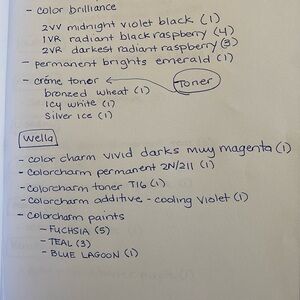 - color brilliance
2VV midnight violet black (1)
1VR radiant black raspberry (4)
2VR darkest radiant raspberry (5)
- permanent brights emerald (1)
- créme toner Toner
bronzed wheat (1)
Icy white (1)
Silver ice (1)
Wella
- color charm vivid darks muy magenta (1)
- Colorcharm permanent 2N/211 (1)
- Colorcharm toner T16 (1)
- Colorcharm additive - cooling violet (1)
- Colorcharm paints
- FUCHSIA (5)
- TEAL (3)
- BLUE LAGOON (1)